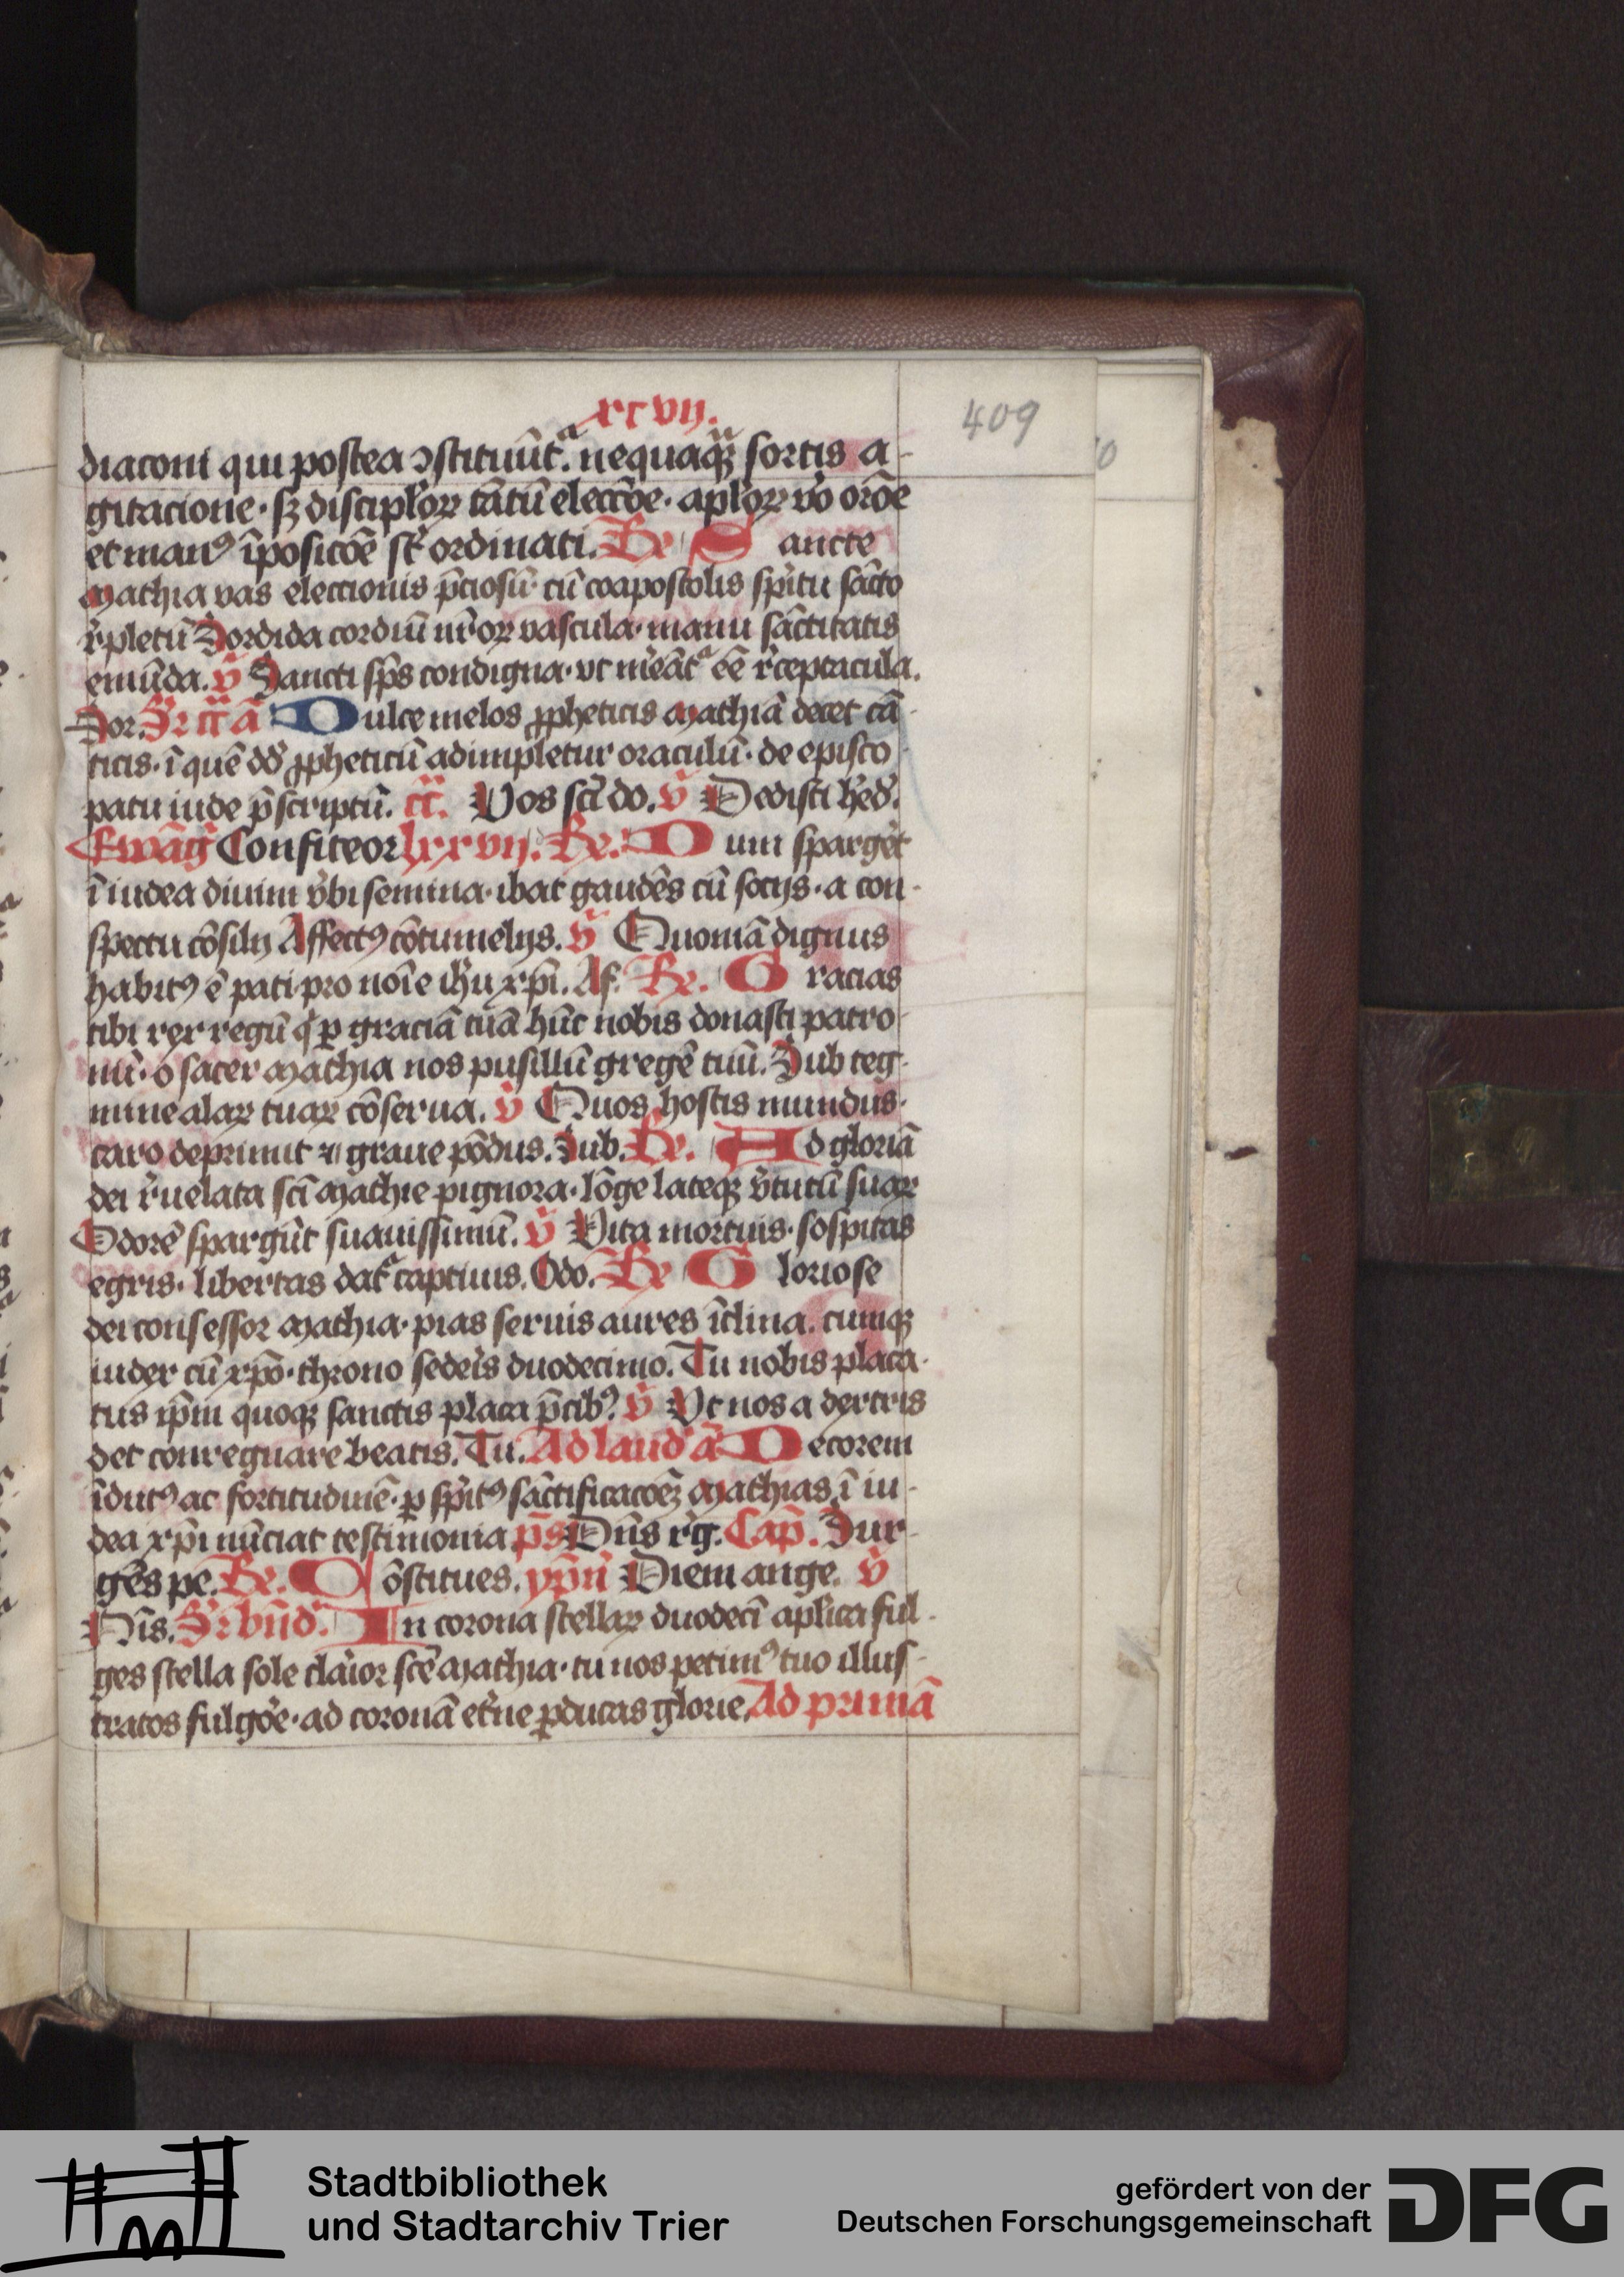 xcvij.
409
diaconi qui postea ɔstituūt᷑. nequaqȝ sortis a-
gitacione· sȝ discipl'oꝝ tātū elecc̄oe· apl'oꝝ v̓o orōe
et manꝰ īposicōe st̄ ordinati. Rx Sancte
Mathia vas eleccionis p̄ciosū· cū coapostolis sp̄itu sācto
r̓pletū Sordida cordiū nr̄oꝝ vascula· manu sāctitatis
emūda. v̄ Sancti sp̄s condigna· vt me̓āt᷑ eē r̓ceptacula.
Sor.
Dulce melos ꝓpheticis Mathiā decet cā-
ticis· ī quē dd̄ ꝓpheticū adimpletur oraculū· de episco
patu iude p̄scriptū. Vos sc̄i do. v̄ Dedisti he̓d.
Ewāg̓ Confiteor lxxvij. Rx. Dum sparge̓t
ī iudea diuini v̓bi semina· ibat gaudēs cū socijs· a con-
spectu cōsilij Affectꝰ cōtumelijs. v̄ Quoniā dignus
habitꝰ ē pati·pro noīe ih̄u xp̄i. Af. Rx. Gracias
tibi rex regū q̓ ꝑ graciā tuā hūc nobis donasti patro-
nū· o sacer Mathia nos pusillū gregē tuū. Sub teg-
mine alaꝝ tuaꝝ cōserua. v̄ Quos hostis mundus·
caro deprimit ⁊ graue pōdus. Sub. Rx. Ad gloriā
dei r̓uelata sc̄i Mathie pignora· lōge lateqȝ v̓tutū suaꝝ
Odorē spargūt suauissimū. v̄ Vita mortuis· sospitas
egris· libertas dat᷑ captiuis. Odo. Rx Gloriose
dei consessor Mathia· pias seruis aures īclina. cumqȝ
iudex cū xp̄o· throno sedeis duodecimo. Tu nobis placa-
tus ip̄m quoqȝ sanctis placa p̄cibꝰ v̄ Vt nos a dextris
det conregnare beatis. Tu. Ad laud' ā Decorem
īdutꝰ ac fortitudinē· ꝑ sp̄itꝰ sāctificacōeȝ Mathias ī iu-
dea xp̄i nūciat testimonia p̄s Dn̄s r̓g. Cap̄. Sur-
gēs pe. Rx. Cōstitues. yp̄n̄ Diem ange. v̄
Nīs. Sr bn̄d'. In corona stellaꝝ duodecī apl'ica ful-
ges stella sole clar̓ior sc̄e Mathia· tu nos petimꝰ tuo illus-
tratos fulgo̓e· ad coronā et̓ne ꝑducas glorie. Ad primā
Stadtbibliothek
und Stadtarchiv Trier
gefördert von der
Deutschen Forschungsgemeinschaft
DFG